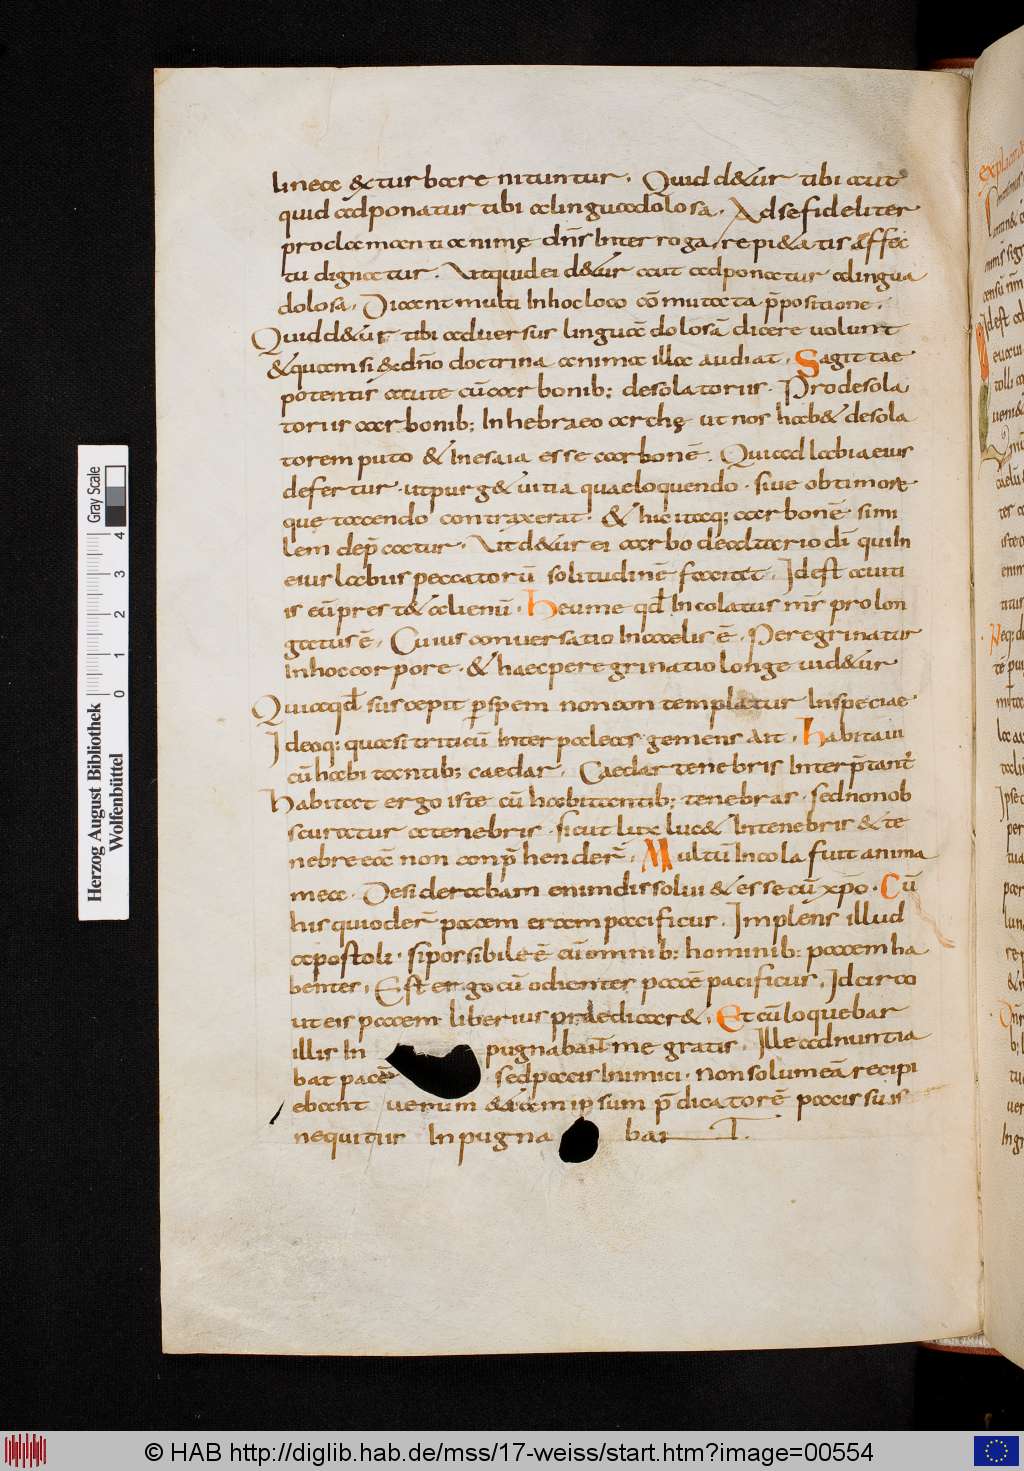 lineae & turbare nituntur. Quid d&ur tibi aut
quid adponatur tibi alinguadolosa. Ad se fideliter
proclamanti animę dn̄s Interroga, repi&atis affec
tu dignatur. Ut quid ei d&ur aut adponatur alingua
dolosa. Dicant multi Inhocloco cōmutata p̄positione.
Quid d&ur tibi aduersus linguā dolosā dicere uolunt
& quam si &dn̄o doctrina animae illa audiat. Sagittae
potentis acute cū carbonib; desolatoriis. Prodesola
toriis carbonib; In hebraeo arthę ut nos hab& desola
torem puto & In esaia esse carbonē. Qui ad labia eius
defertur. ut purg& uitia quae loquendo. siue obtimore
que tacendo contraxerat. & hic itaq; carbonē simi
lem dep̄catur. Ut d&ur ei carbo deadtario dī qui In
eius labiis peccatorū solitudinē faciat. Id est auiti
is eū prest& alienū. Heu me qđ Incolatus m̄s prolon
gatus ē. Cuius conuersatio In caelis ē. Peregrinatur
in hoc corpore. & haec peregrinatio longe uid&ur
Quia qđ suscepit p spem non contemplatur In speciae
Ideoq; quasi triticū Inter paleas gemens ait. Habitaui
cū habitantib; caedar. Caedar tenebris Interp̄tant̃
Habitat ergo iste cū habitantib; tenebras. sed non ob
scuratur atenebris. sicut lux luc& In tenebris & te
nebre eā non conp̄hendert̄. Multū Incola fuit anima
mea. Desiderabam enim dissolui & esse cū xp̄o. Cū
his qui odert̄ pacem eram pacificus. Implens illud
apostoli. si possibile ē cū omnib; hominib; pacem ha
bentes. Est ergo cū odientes pacē pacificus. Idcirco
ut eis pacem liberius praedicar&. Et cū loquebar
illis In pugnabant me gratis. Ille adnuntia
bat pacē sed pacis Inimici. non solum eā recipi
ebant uerum &iam ipsum p̄dicatorē pacis suis
nequitiis Inpugna bant.
Herzog August Bibliothek
Wolfenbüttel
Gray Scale
0 1 2 3 4
© HAB http://diglib.hab.de/mss/17-weiss/start.htm?image=00554